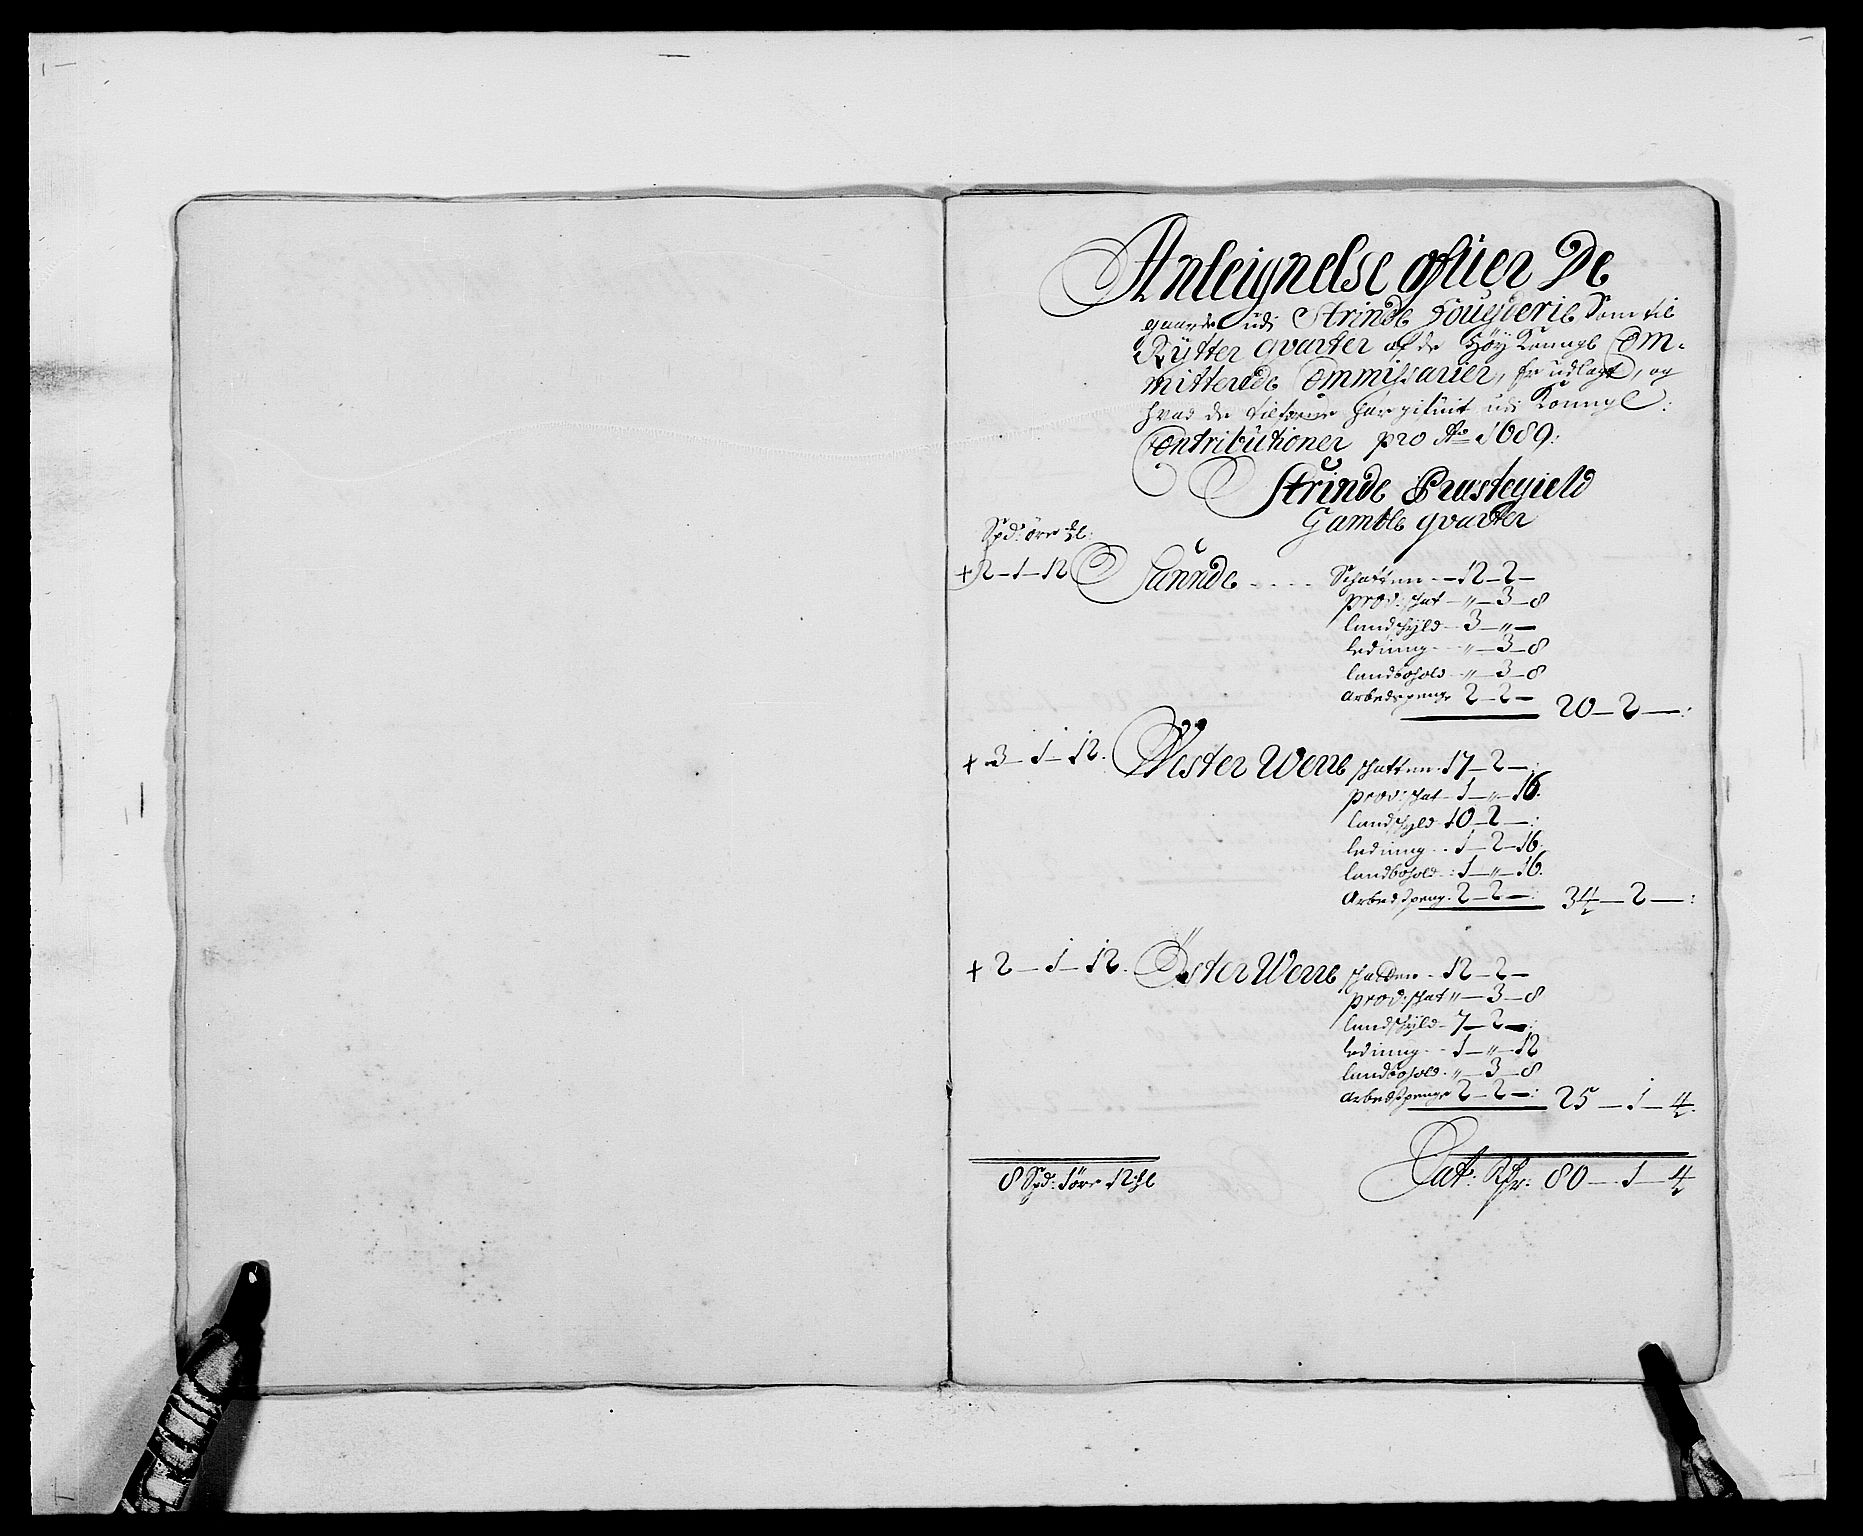 Anteignelse ofuer De
gaarde udj Strinde Fougderie Som til
Rÿtter qvarter af de Höy Konngl Com-
mitterede Commissarier, er udlagt, og
hvad de tilforne har giluit udi Konngl:
Contributioner pro Ao 1689:
Strinde Præstegield
Gamble qvarter
Spd: öre :
+ 2 – 1 – 12 Sunnde - - - - Schatten - – 12 – 2 –
prov: schat – „ – 3 – 8
landschÿld – 3 – „ –
leding - - „ – 3 – 8
landbohold - „ – 3 – 8
Arbedspenge 2 – 2 – 20 – 2 – :
+ 3 – 1 – 12. Wester Werre schatten . 17 – 2 – :
prov: schat – 1 – „ – 16.
landschÿld 10 – 2 – :
leding . . 1 – 2 – 16.
landbohold : 1 – „ – 16.
Arbedspeng. 2 – 2 – : 34 – 2 – :
+ 2 – 1 – 12. Öster Werre schatten - 12 – 2 –
prov: schat „ – 3 – 8
landschÿld – 7 – 2 – :
leding - - 1 – „ – 12
landbohold . „ – 3 – 8
Arbedspenge 2 – 2 – : 25 – 1 – 4.
8 Spd: 1 öre 12 Lat: Rdr: 80 – 1 – 4